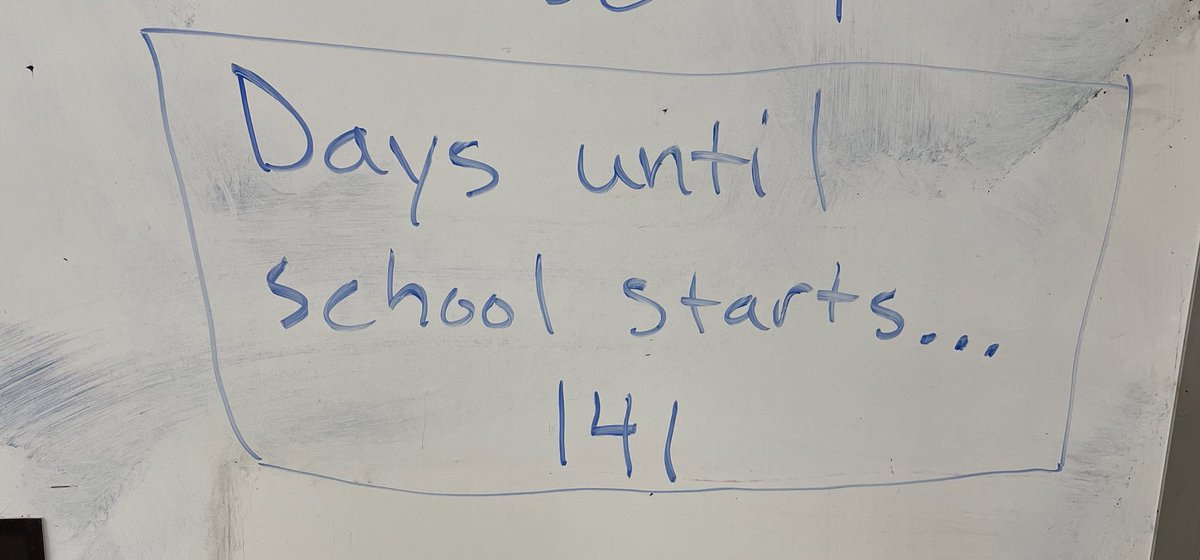 Days until
school starts...
141